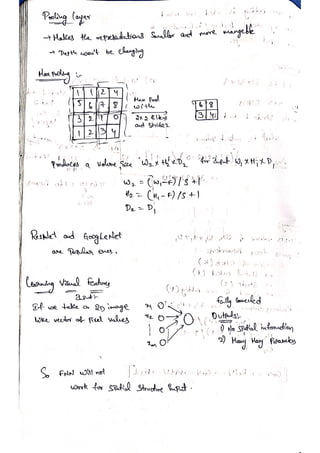 Pooling Layer
→ Makes the representations smaller and more mangeble
→ Depth won't be changing
Max Pooling
1 1 2 4
5 6 7 8
3 2 1 0
1 2 3 4
Max Pool
with
2×2 filters
and stride 2
6 8
3 4
Produces a volume size W2 × H2 × D2 for input W1 × H1 × D1
W2 = (W1-F)/S +1
H2 = (H1-F)/S +1
D2 = D1
ResNet and GoogleNet
are Popular ones.
Learning Visual Features
Input:-
If we take a 2D image
like vector of Pixel values
Fully connected
Outputs:
1) No Spatial information
2) Many Many Parameters
So FNN will not
work for Spatial Structure Input.